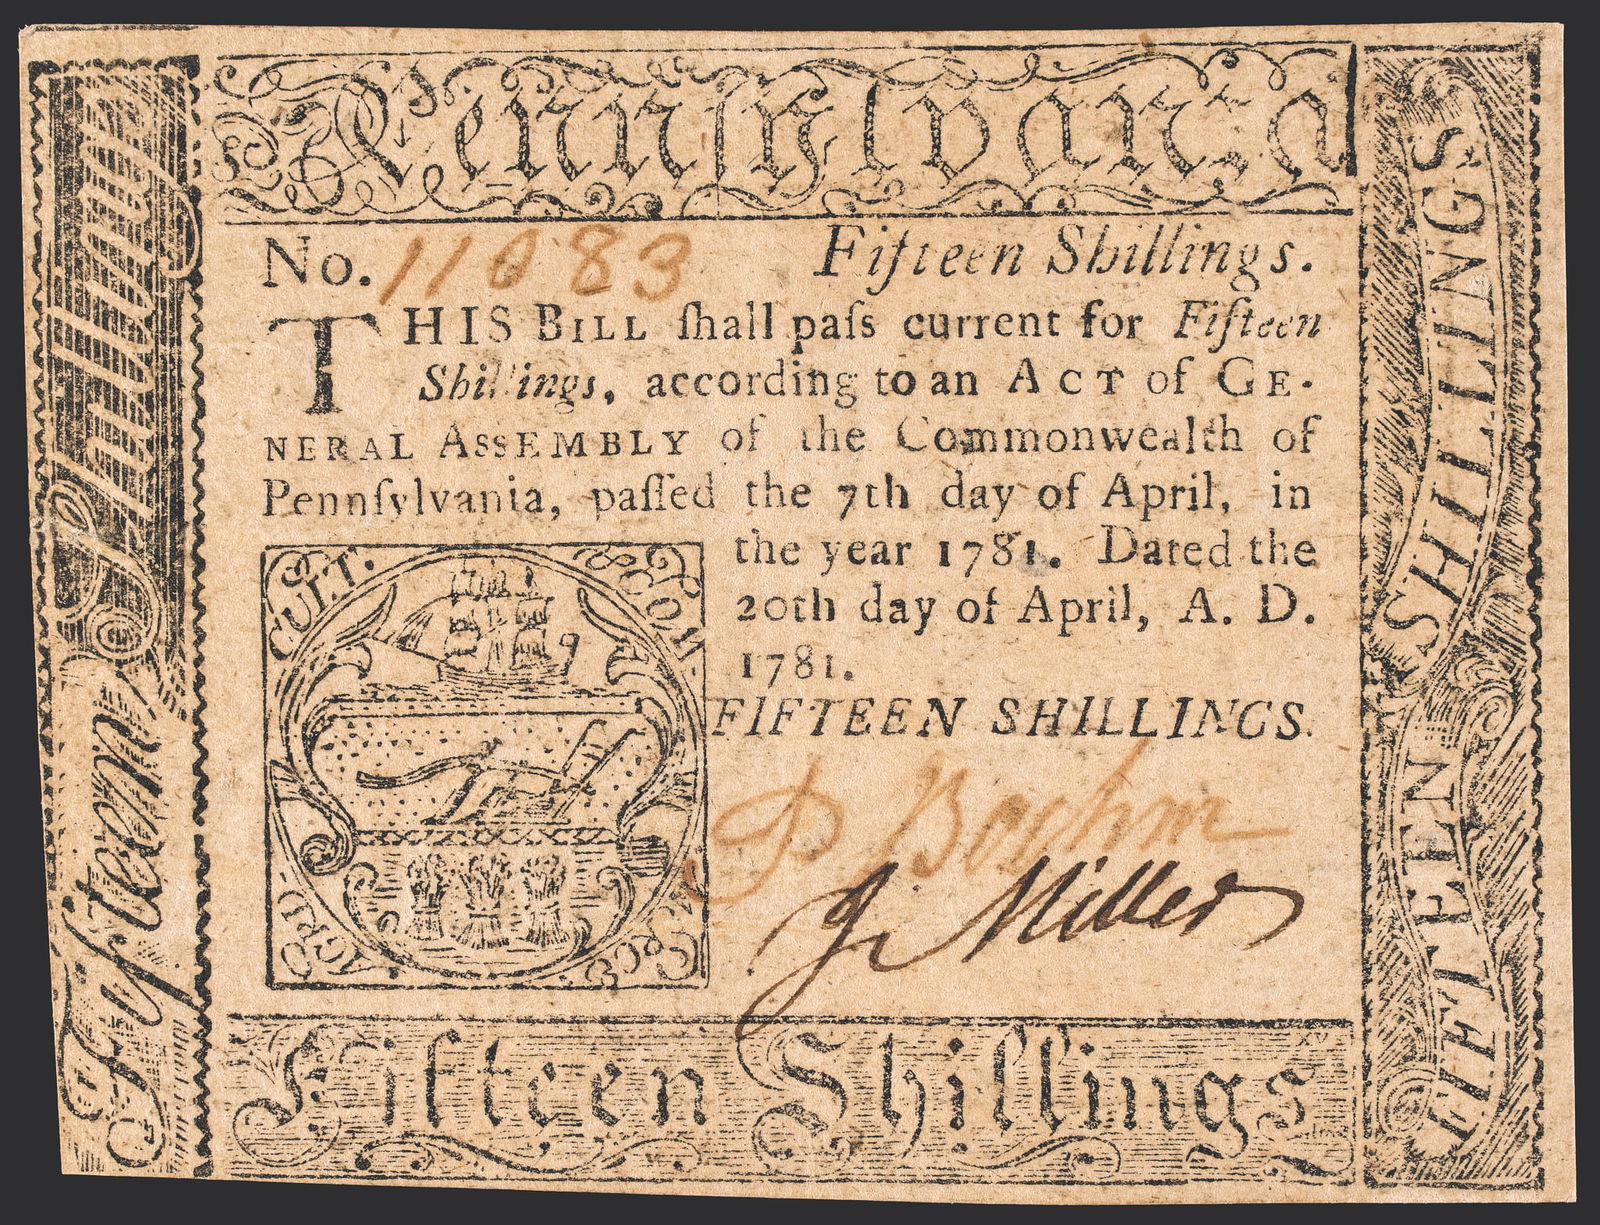 Pennſylvania
No. 11083 Fifteen Shillings.
THIS BILL ſhall paſs current for Fifteen
Shillings, according to an ACT of GE-
NERAL ASSEMBLY of the Commonwealth of
Pennſylvania, paſſed the 7th day of April, in
the year 1781. Dated the
20th day of April, A. D.
1781.
FIFTEEN SHILLINGS.
P Boehm
J. Miller
CULT. & COM
Fifteen Shillings
Fifteen Shillings
FIFTEEN SHILLINGS
XV